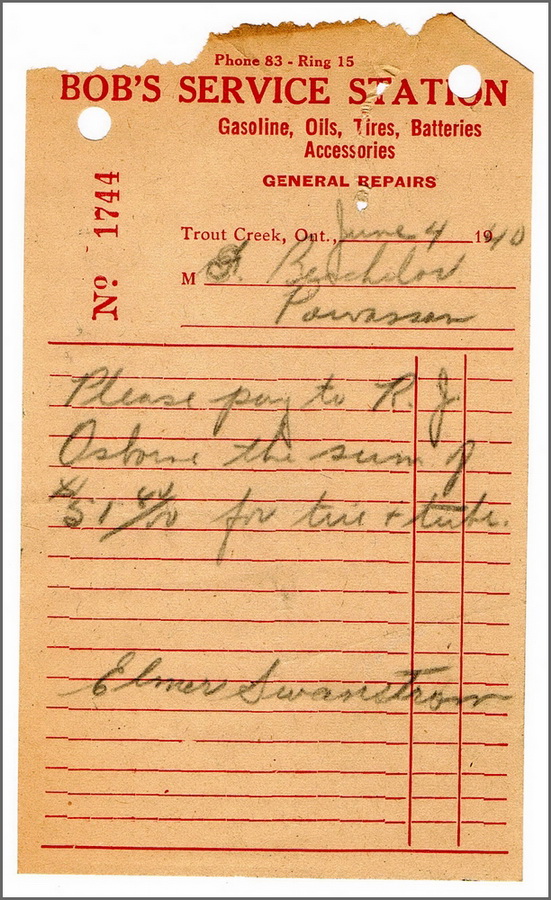 Phone 83 - Ring 15
BOB'S SERVICE STATION
Gasoline, Oils, Tires, Batteries
Accessories
GENERAL REPAIRS
No 1744
Trout Creek, Ont., June 4 1940
M
Powassan
Please pay to R. J.
Osborne the sum of
$51 40/00 for tire + tube.
Elmer Swanstrom